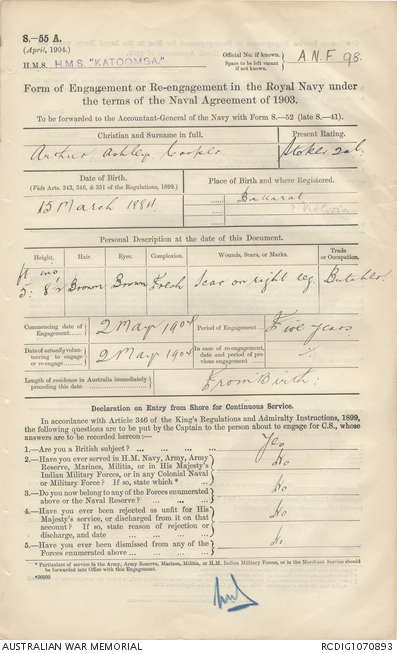 S.—55 A.
(April, 1904.)
H.M.S. H.M.S. "KATOOMBA."
Official No. if known.
Space to be left vacant
if not known.
A.N.F 98.
Form of Engagement or Re-engagement in the Royal Navy under
the terms of the Naval Agreement of 1903.
To be forwarded to the Accountant-General of the Navy with Form S.—52 (late S.—41).
Christian and Surname in full.
Present Rating.
Arthur Ashley Cooper
Stoker 2cl.
Date of Birth.
(Vide Arts. 343, 346, & 351 of the Regulations, 1899.)
Place of Birth and where Registered.
15 March 1884.
Ballarat
Victoria
Personal Description at the date of this Document.
Height.
Hair.
Eyes.
Complexion.
Wounds, Scars, or Marks.
Trade
or Occupation.
ft
5: 8½
Brown
Brown
Fresh
Scar on right leg.
Butcher
Commencing date of
Engagement
2 May 1904
Period of Engagement
Five years
Date of actually volun-
teering to engage
or re-engage
2 May 1904
In case of re-engagement,
date and period of pre-
vious engagement
Length of residence in Australia immediately
preceding this date
From Birth:
Declaration on Entry from Shore for Continuous Service.
In accordance with Article 346 of the King's Regulations and Admiralty Instructions, 1899,
the following questions are to be put by the Captain to the person about to engage for C.S., whose
answers are to be recorded herein:—
1.—Are you a British subject?
Yes
2.—Have you ever served in H.M. Navy, Army, Army
Reserve, Marines, Militia, or in His Majesty's
Indian Military Forces, or in any Colonial Naval
or Military Force? If so, state which *
No
3.—Do you now belong to any of the Forces enumerated
above or the Naval Reserve?
No
4.—Have you ever been rejected as unfit for His
Majesty's service, or discharged from it on that
account? If so, state reason of rejection or
discharge, and date
No
5.—Have you ever been dismissed from any of the
Forces enumerated above
No
* Particulars of Service in the Army, Army Reserve, Marines, Militia, or H.M. Indian Military Forces, or in the Merchant Service should
be forwarded into Office with this Engagement.
AUSTRALIAN WAR MEMORIAL
RCDIG1070893